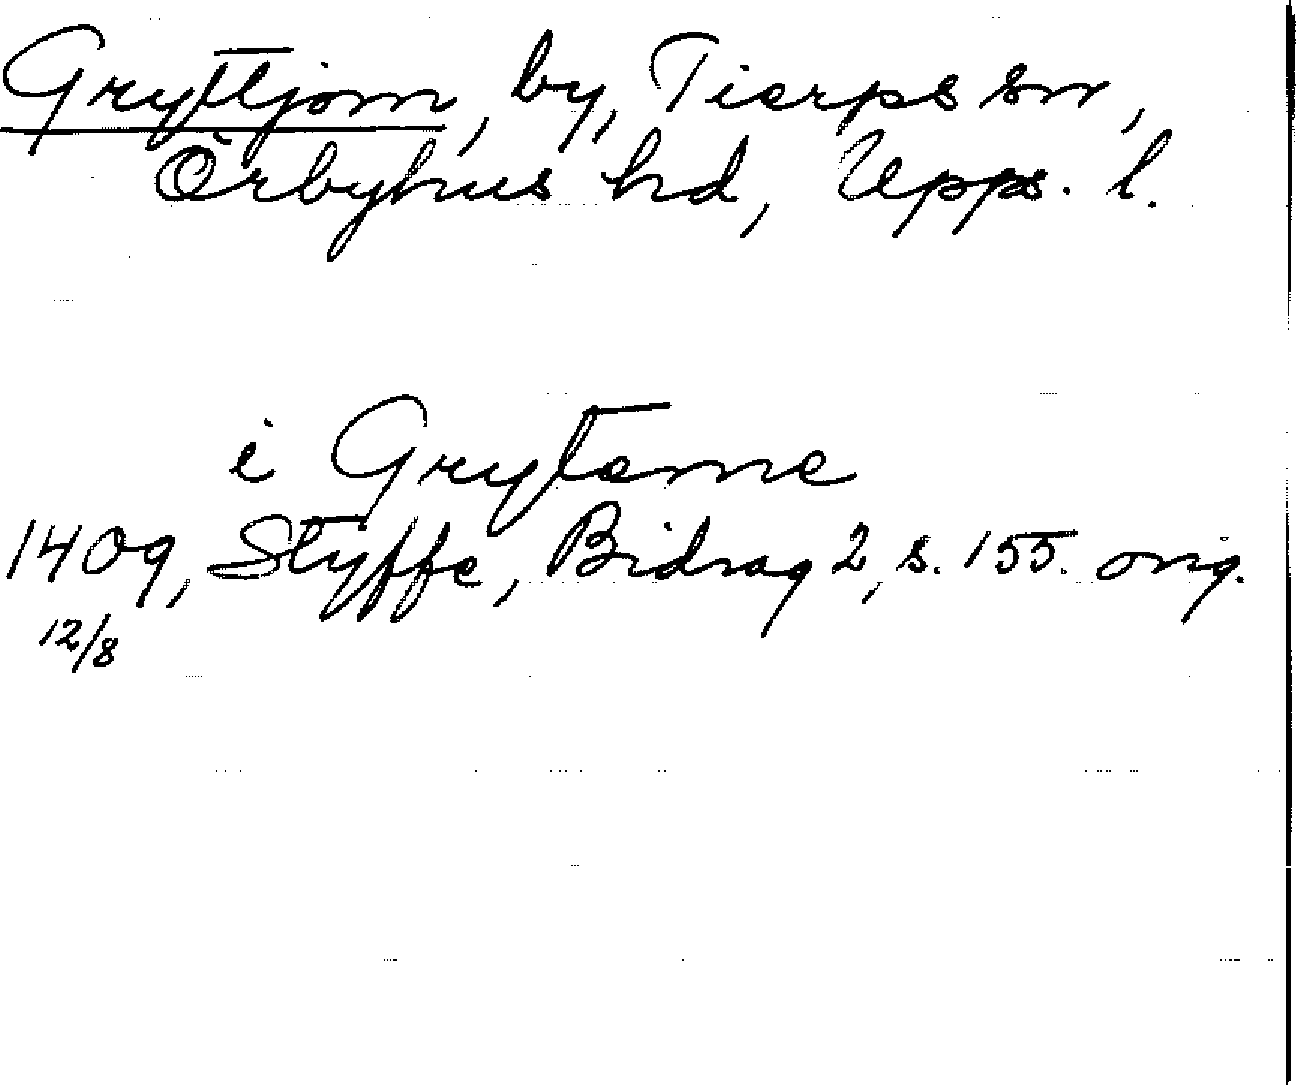 Gryttjom, by, Tierps sn,
Örbyhus hd, Upps. l.
i Grytome
1409, Styffe, Bidrag 2, s. 155. orig.
12/8